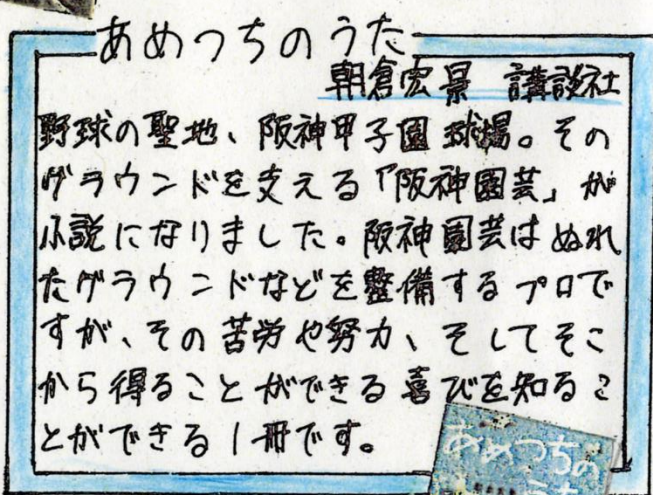 あめつちのうた
朝倉宏景 講談社
野球の聖地、阪神甲子園球場。その
グラウンドを支える「阪神園芸」が
小説になりました。阪神園芸はぬれ
たグラウンドなどを整備するプロで
すが、その苦労や努力、そしてそこ
から得ることができる喜びを知るこ
とができる1冊です。
あめつちの
うた